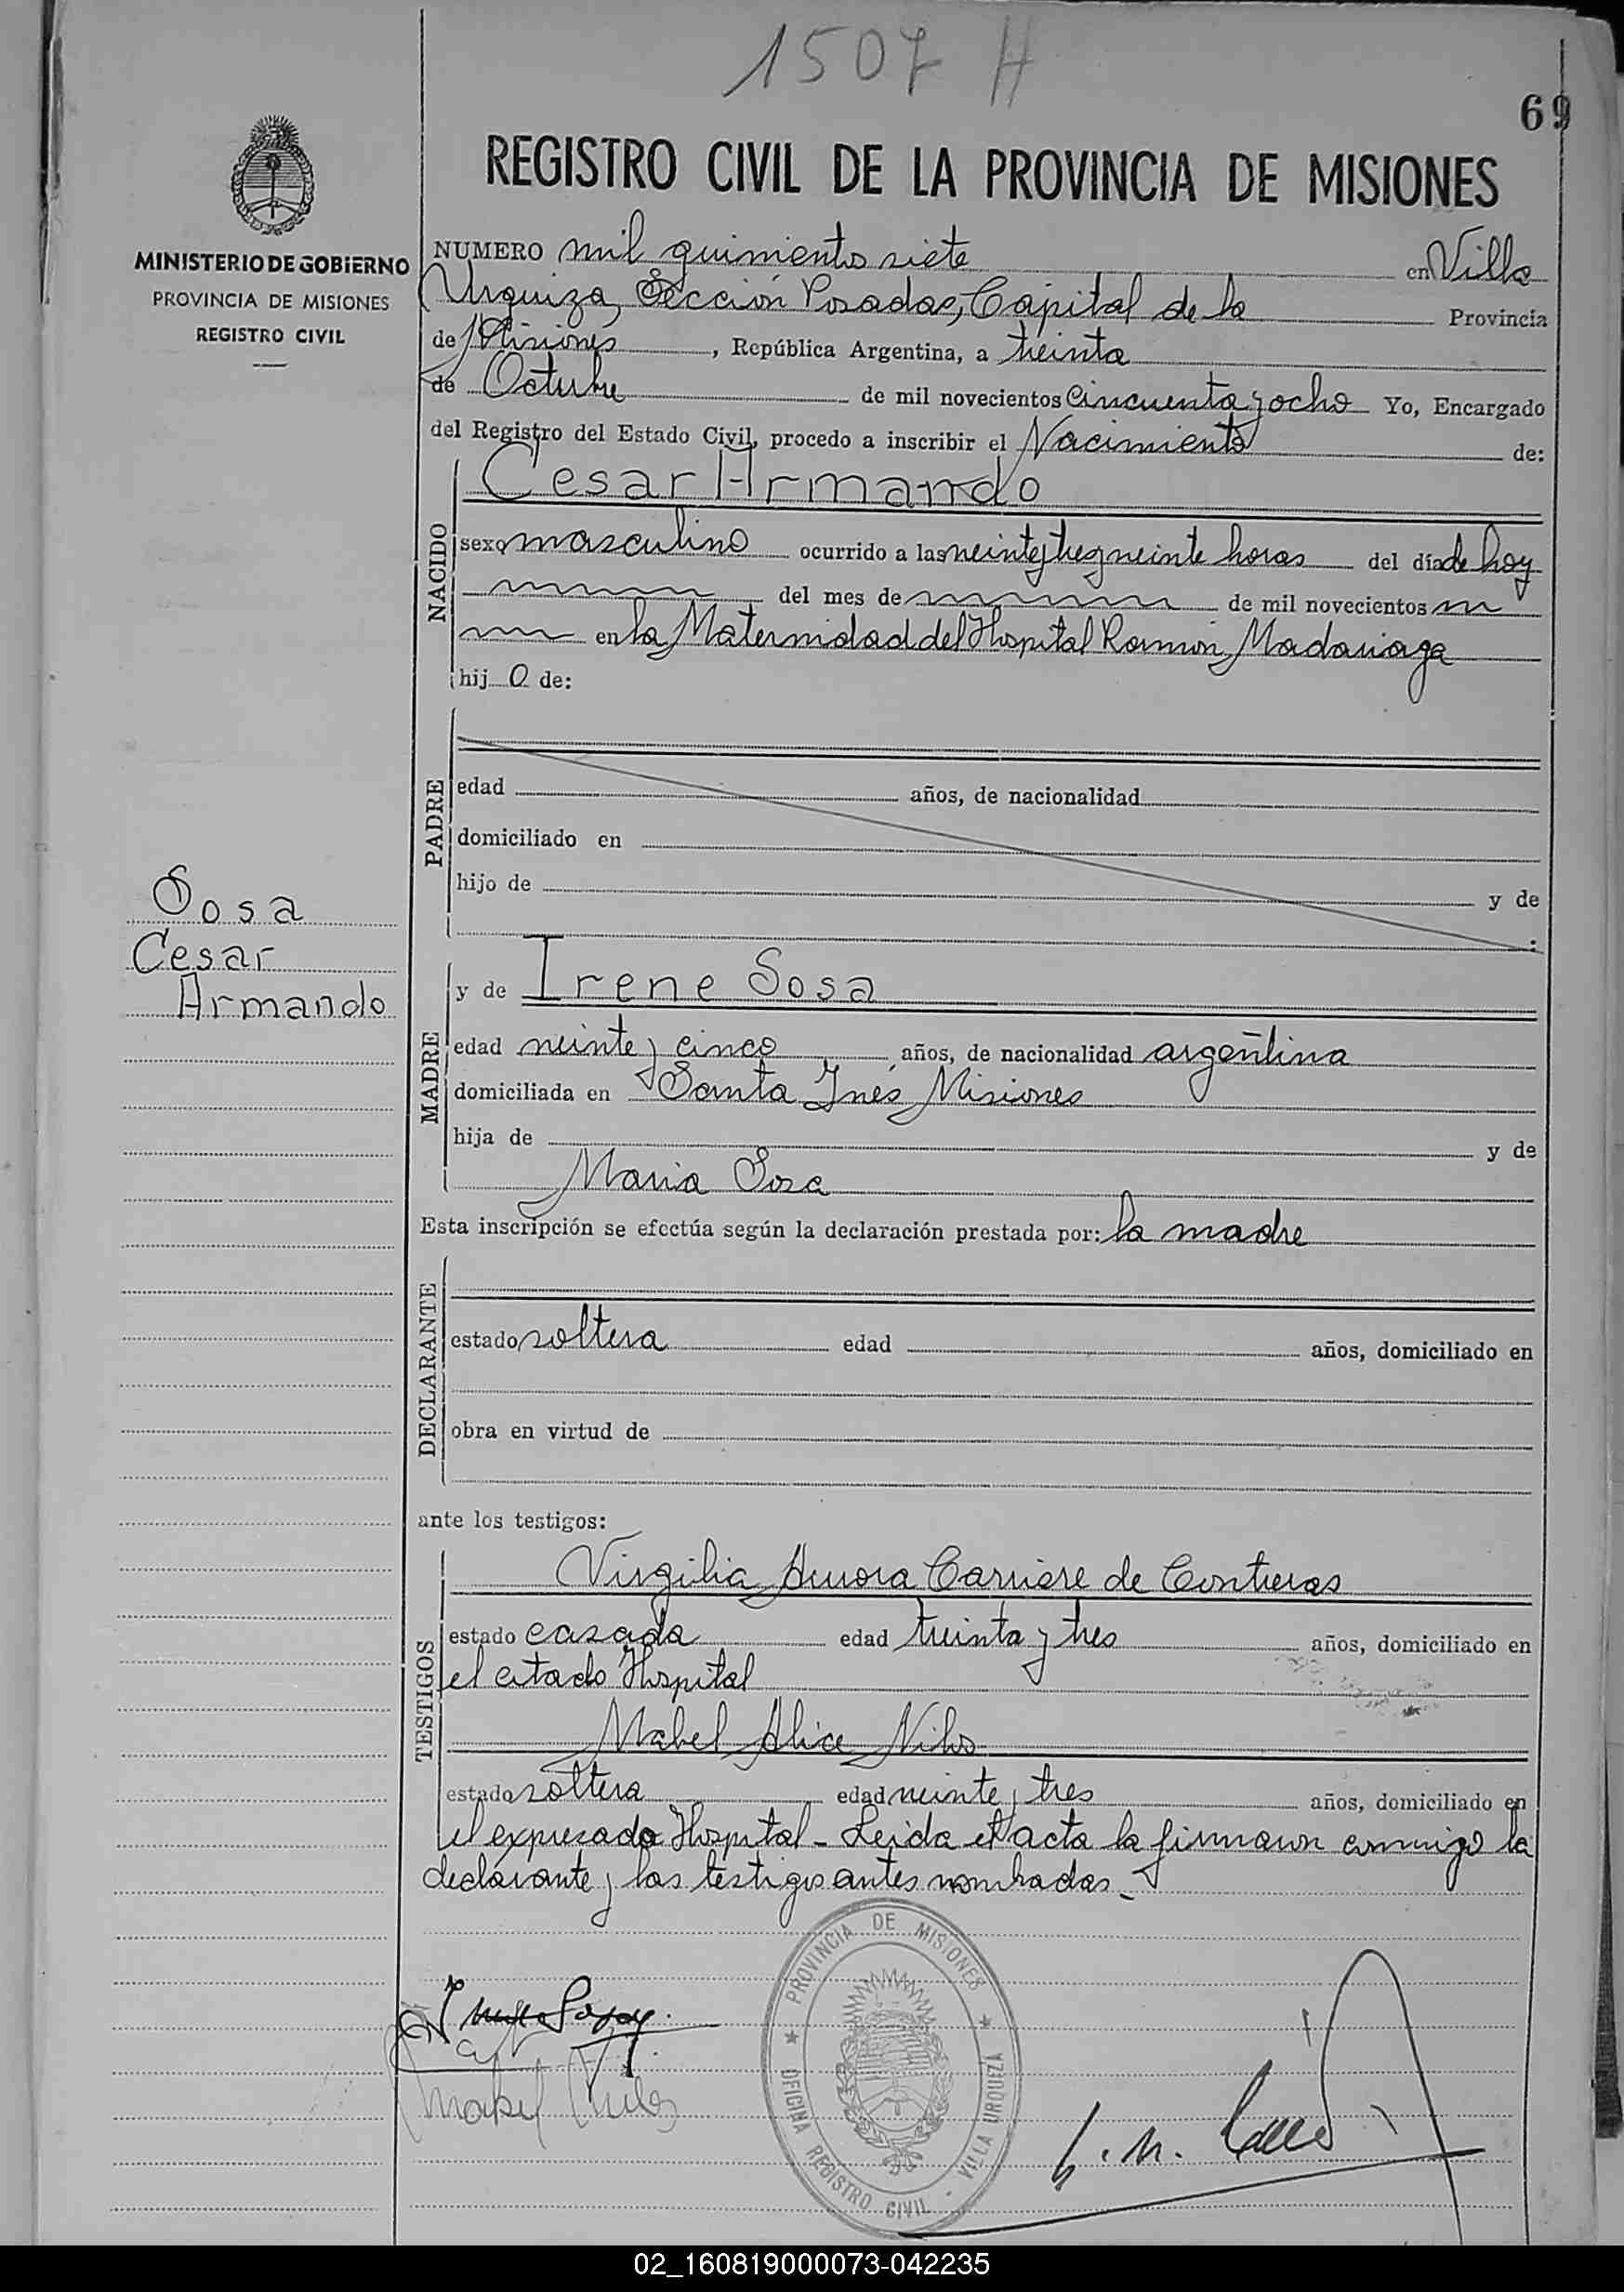 1507 H
69
MINISTERIO DE GOBIERNO
PROVINCIA DE MISIONES
REGISTRO CIVIL
REGISTRO CIVIL DE LA PROVINCIA DE MISIONES
NUMERO mil quinientos siete en Villa
Urquiza, Sección Posadas, Capital de la Provincia
de Misiones, República Argentina, a treinta
de Octubre de mil novecientos cincuenta y ocho Yo, Encargado
del Registro del Estado Civil, procedo a inscribir el Nacimiento de:
NACIDO
Cesar Armando
sexo masculino ocurrido a las veinte y tres y veinte horas del día de hoy
del mes de de mil novecientos
en la Maternidad del Hospital Ramón Madariaga
hijo de:
PADRE
edad años, de nacionalidad
domiciliado en
hijo de y de
:
Sosa
Cesar
Armando
MADRE
y de Irene Sosa
edad veinte y cinco años, de nacionalidad argentina
domiciliada en Santa Inés Misiones
hija de y de
Maria Sosa
Esta inscripción se efectúa según la declaración prestada por: la madre
DECLARANTE
estado soltera edad años, domiciliado en
obra en virtud de
ante los testigos:
TESTIGOS
Virgilia Aurora Carriere de Contreras
estado casada edad treinta y tres años, domiciliado en
el citado Hospital
Mabel Alice
estado soltera edad veinte y tres años, domiciliado en
el expresado Hospital - Leida el acta la firmaron conmigo la
declarante y las testigos antes nombradas.-
Irene Sosa
Mabel
PROVINCIA DE MISIONES
OFICINA REGISTRO CIVIL - VILLA URQUIZA
02_160819000073-042235